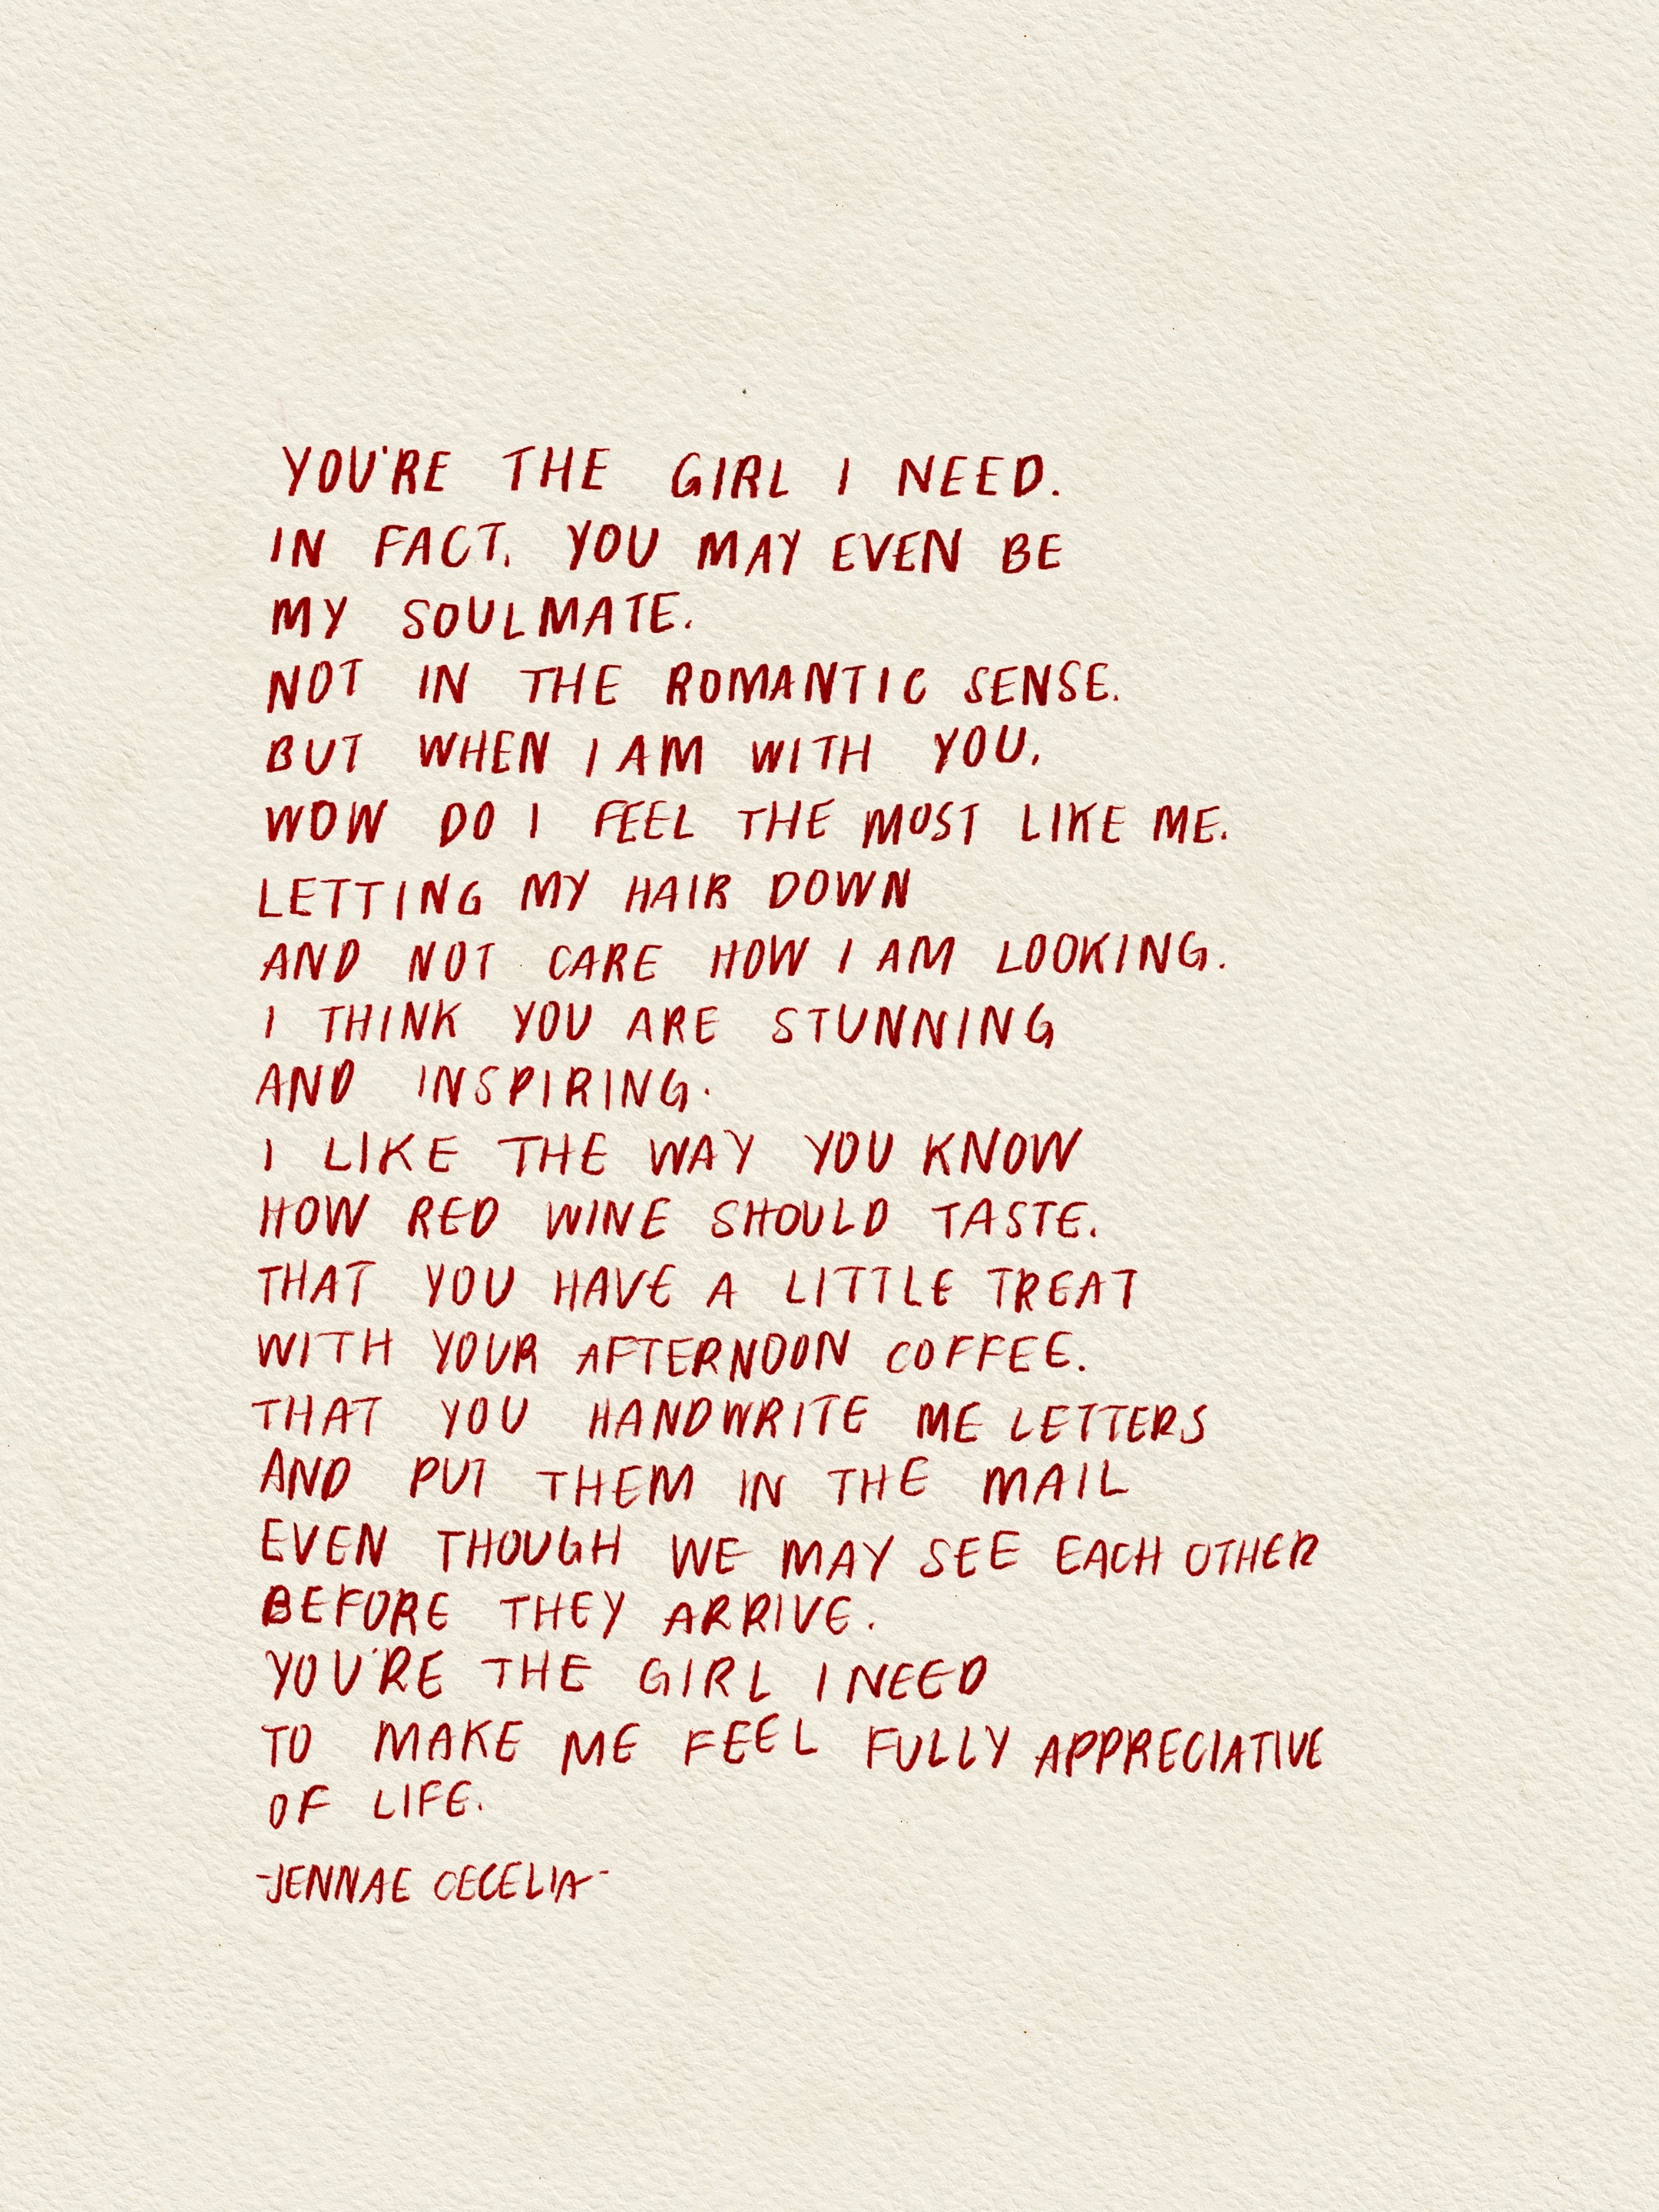 YOU'RE THE GIRL I NEED.
IN FACT, YOU MAY EVEN BE
MY SOULMATE.
NOT IN THE ROMANTIC SENSE.
BUT WHEN I AM WITH YOU,
WOW DO I FEEL THE MOST LIKE ME.
LETTING MY HAIR DOWN
AND NOT CARE HOW I AM LOOKING.
I THINK YOU ARE STUNNING
AND INSPIRING.
I LIKE THE WAY YOU KNOW
HOW RED WINE SHOULD TASTE.
THAT YOU HAVE A LITTLE TREAT
WITH YOUR AFTERNOON COFFEE.
THAT YOU HANDWRITE ME LETTERS
AND PUT THEM IN THE MAIL
EVEN THOUGH WE MAY SEE EACH OTHER
BEFORE THEY ARRIVE.
YOU'RE THE GIRL I NEED
TO MAKE ME FEEL FULLY APPRECIATIVE
OF LIFE.
-JENNAE CECELIA-